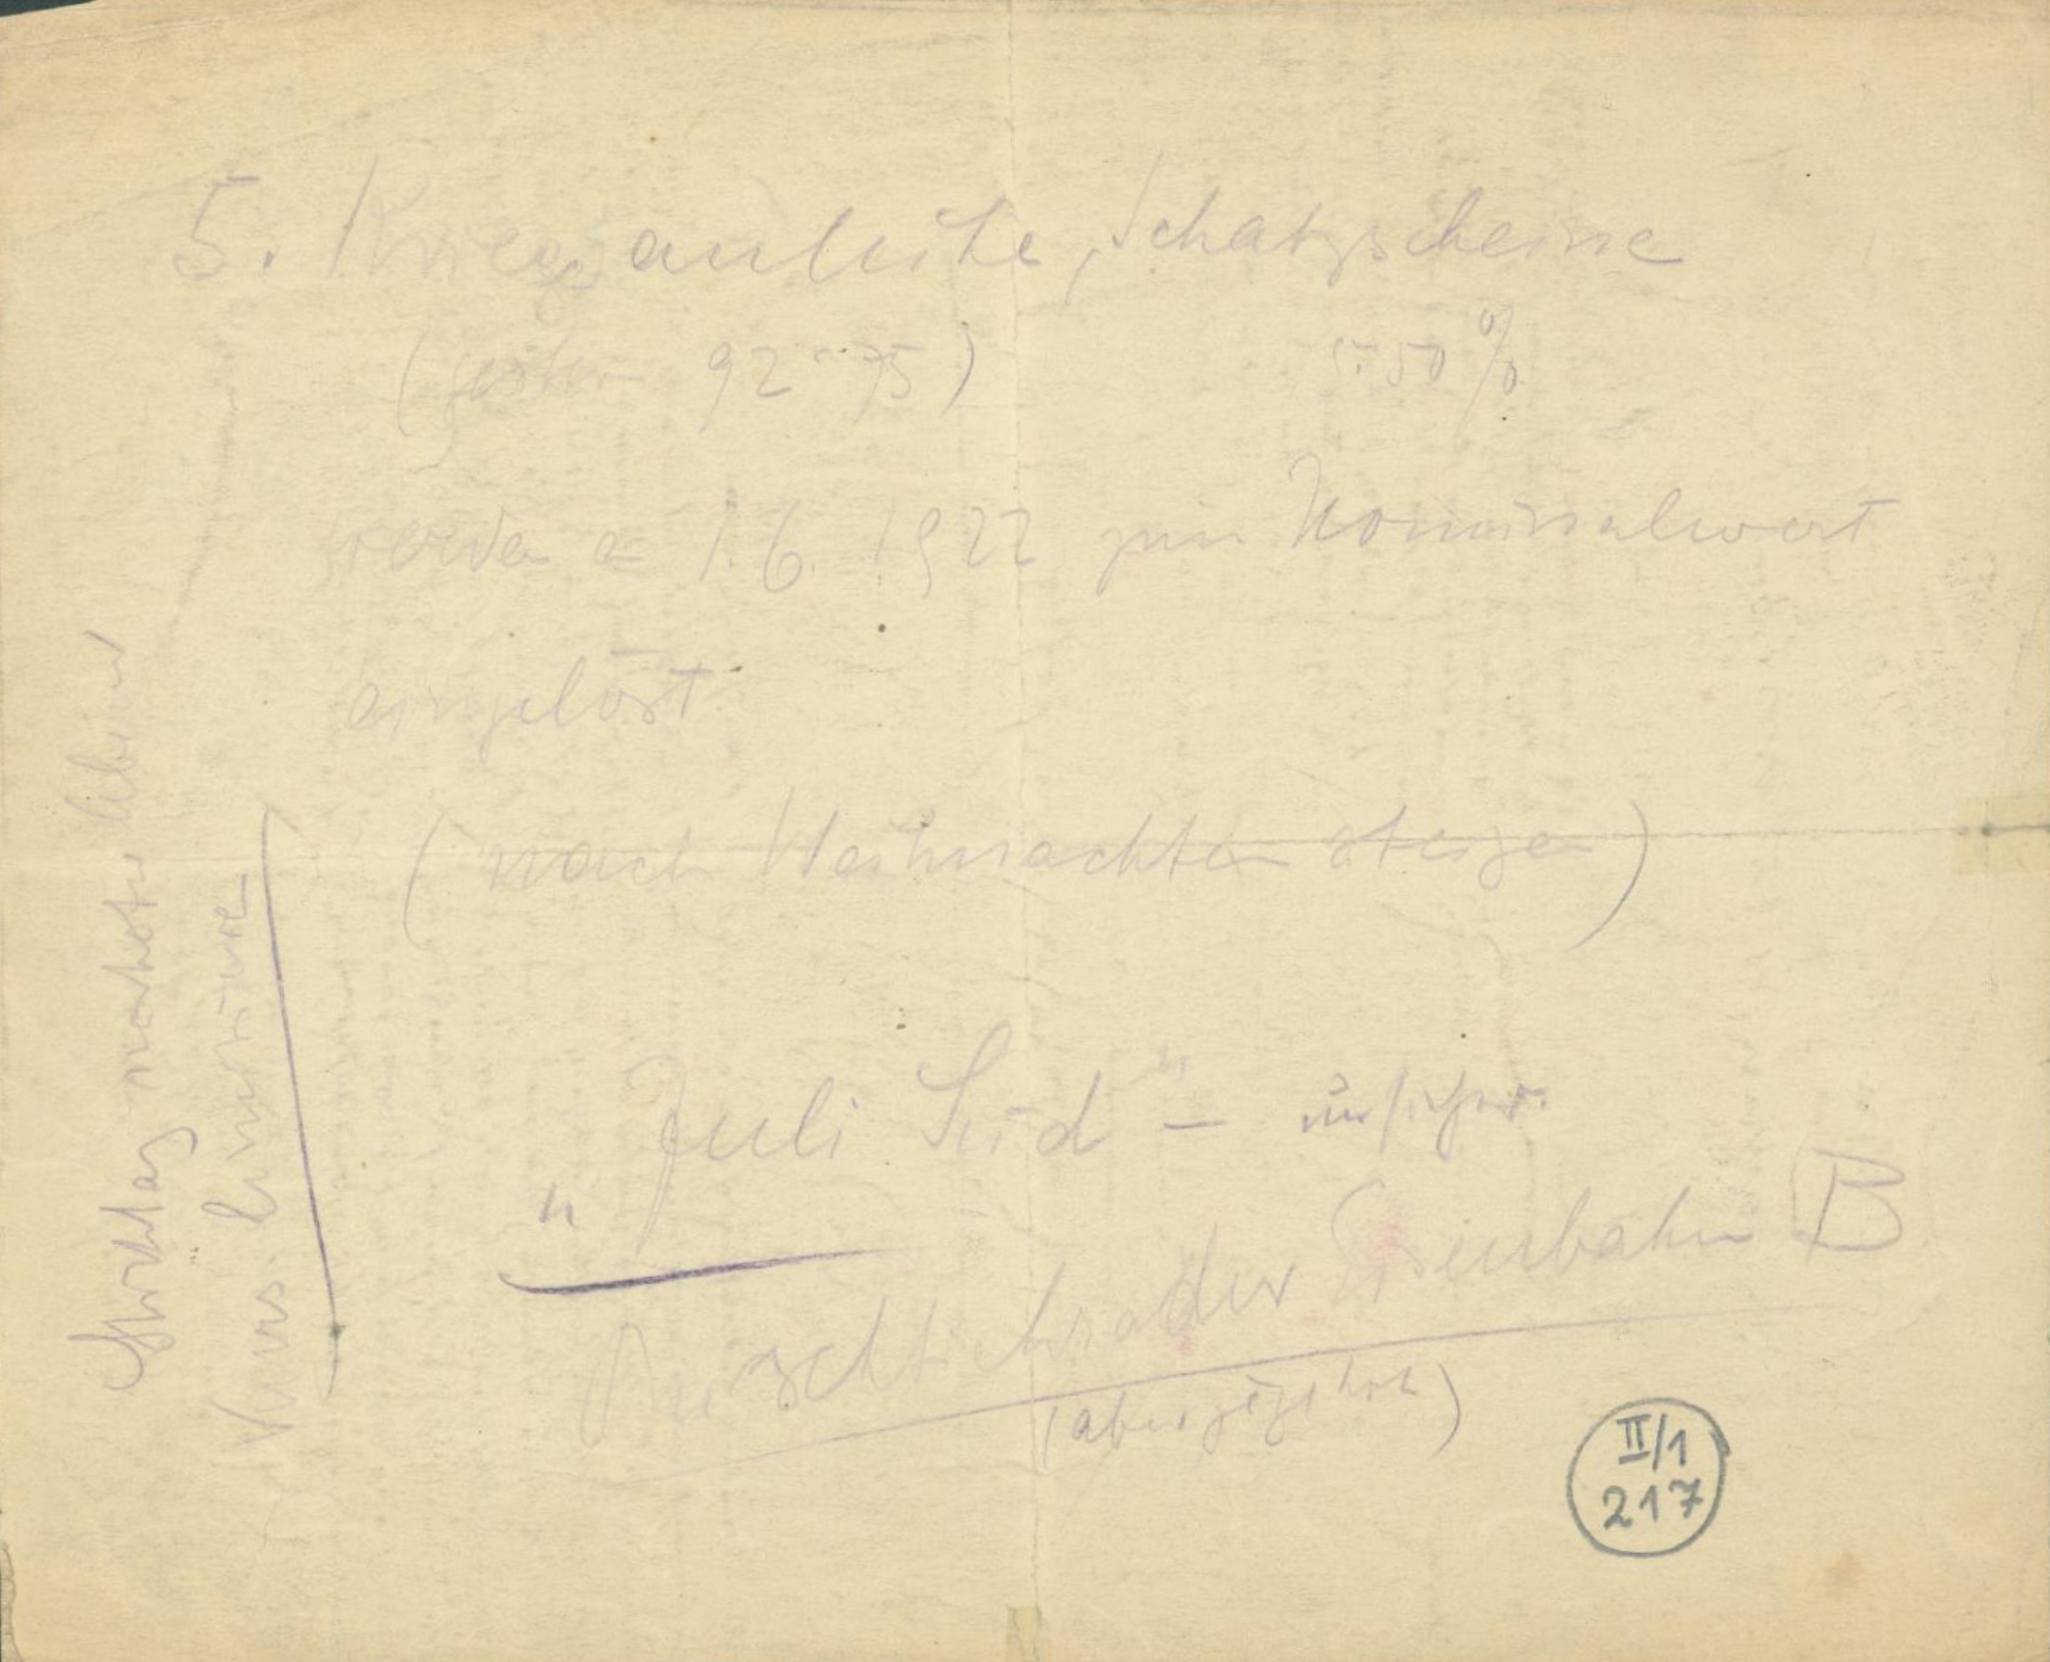 5. Kriegsanleihe, Schatzscheine
(gestern 92·75) 5·50%
werden a 1.6 1922 zum Nominalwert
eingelöst
(nach Weihnachten steigen)
„Juli Süd" – unsicher
Buschtiehrader Eisenbahn B
(aber hoch)
Kurs.
II/1
217